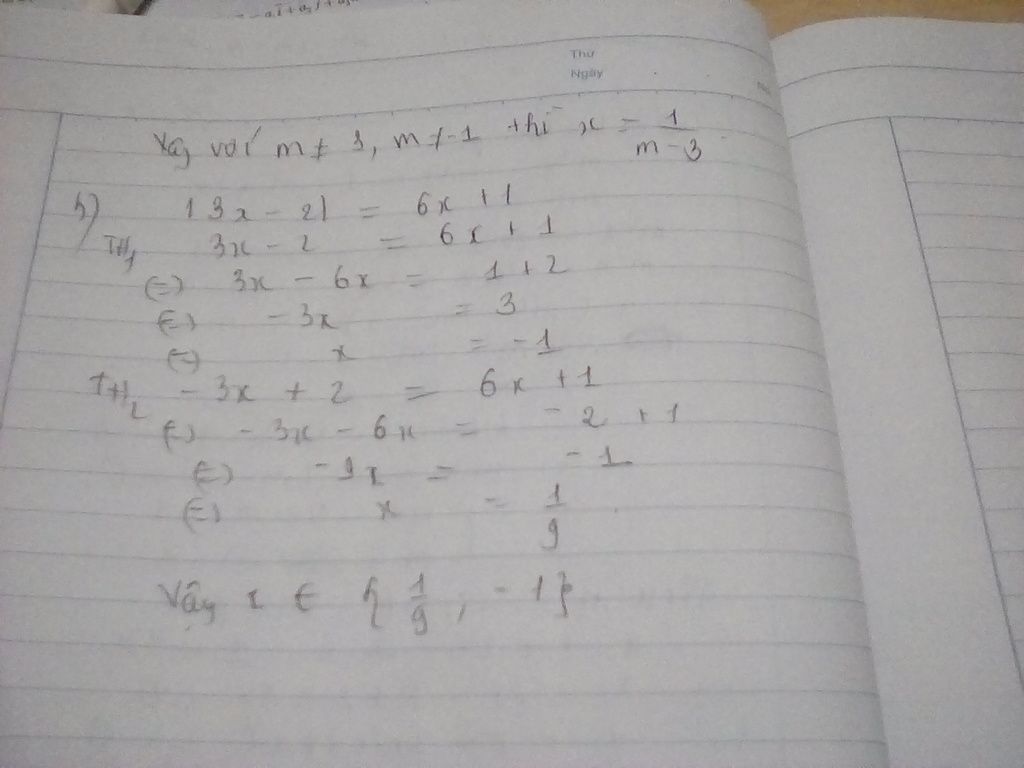 Thứ
Ngày
Vậy với m ≠ 3, m ≠ -1 thì x = 1/(m - 3)
b) |3x - 2| = 6x + 1
TH1 3x - 2 = 6x + 1
(=) 3x - 6x = 1 + 2
(=) - 3x = 3
(=) x = -1
TH2 - 3x + 2 = 6x + 1
(=) - 3x - 6x = - 2 + 1
(=) - 9x = - 1
(=) x = 1/9
Vậy x ∈ {1/9, - 1}